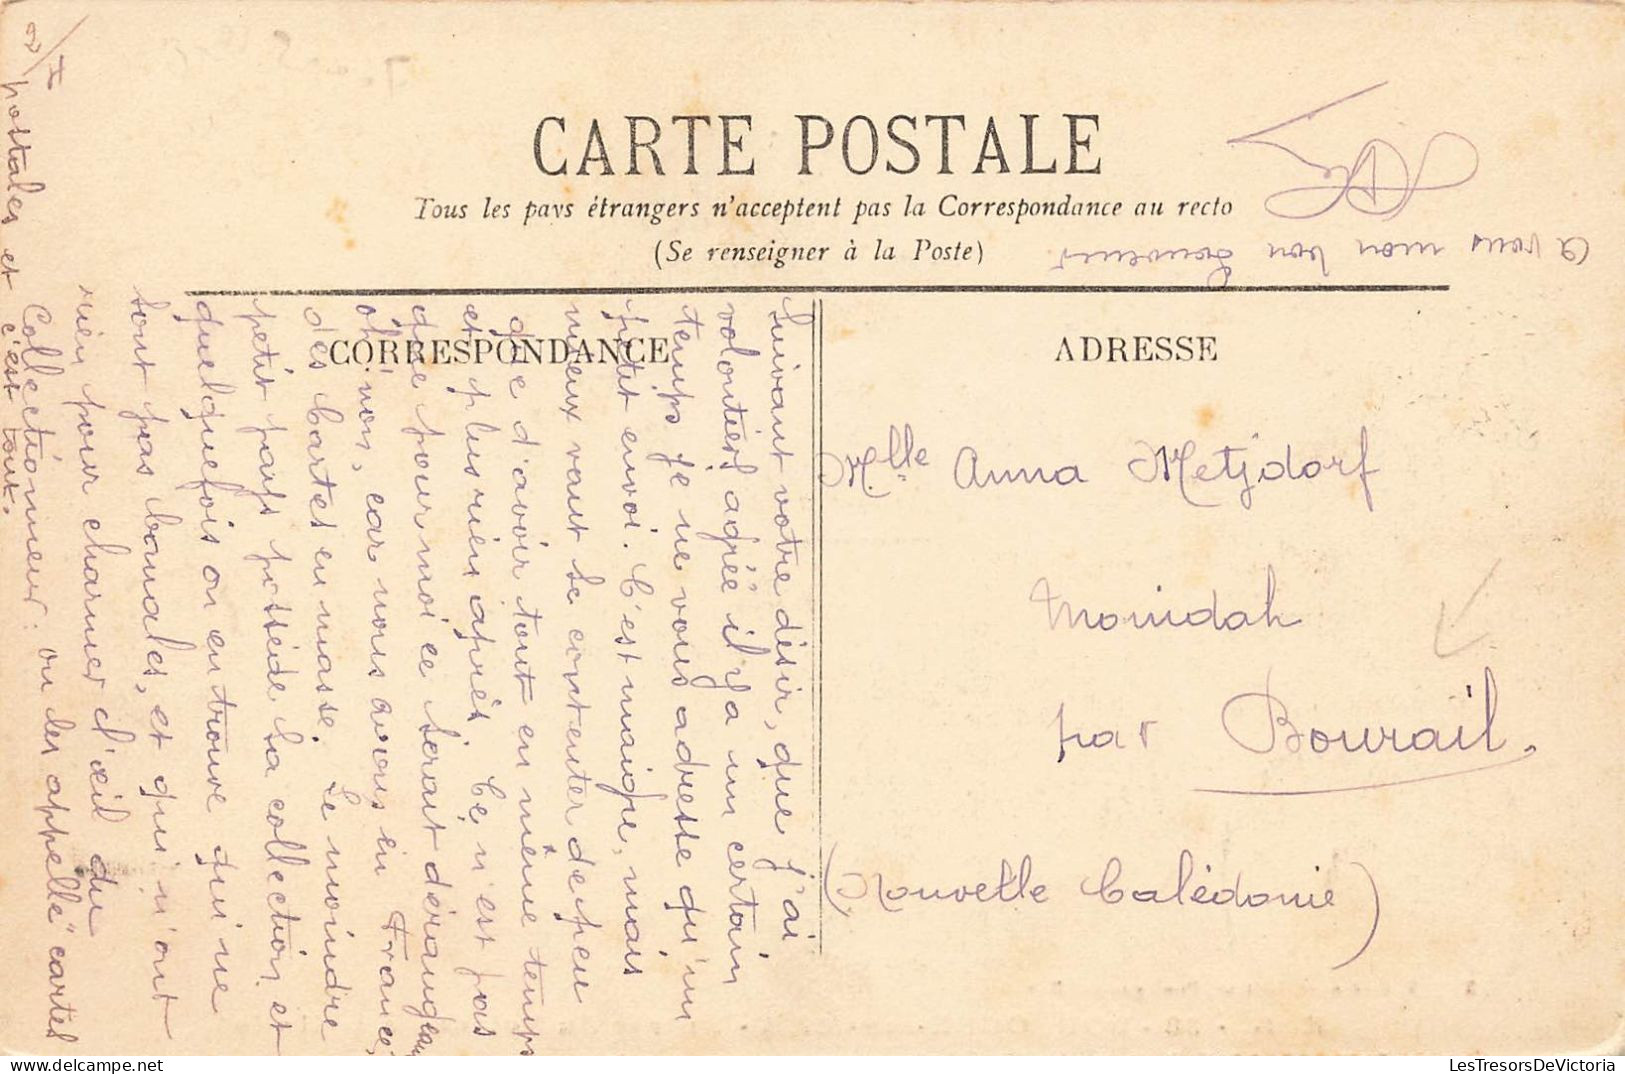 CARTE POSTALE
Tous les pays étrangers n'acceptent pas la Correspondance au recto
(Se renseigner à la Poste)
CORRESPONDANCE
ADRESSE
Suivant votre désir, que j'ai
volontiers agrée il y a un certain
temps je ne vous adresse qu'un
petit envoi. C'est maigre, mais
mieux vaut se contenter de peu
que d'avoir tout en même temps
et plus rien après. Ce n'est pas
que pour moi ce serait dérangeant
oh! non, car nous avons en France,
des cartes en masse. Le moindre
petit pays possède sa collection et
quelquefois on en trouve qui ne
sont pas banales, et qui n'ont
rien pour charmer l'œil du
Collectionneur: on les appelle "cartes
postales et
c'est tout.
a vous mon bon souvenir
Melle Anna Metzdorf
Monidah
par Bourail.
(Nouvelle Calédonie)
LesTresorsDeVictoria